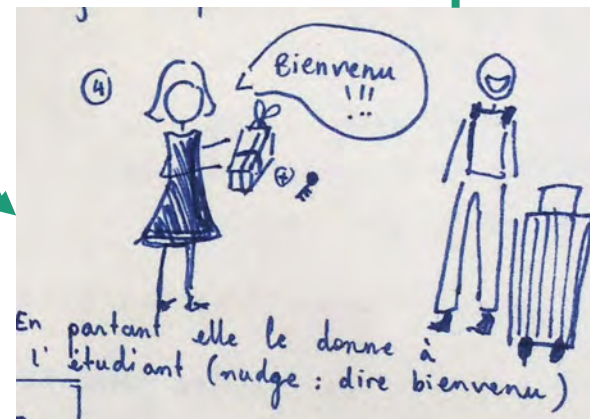 ④
Bienvenu
!!!
En partant elle le donne à
l'étudiant (nudge : dire bienvenu)